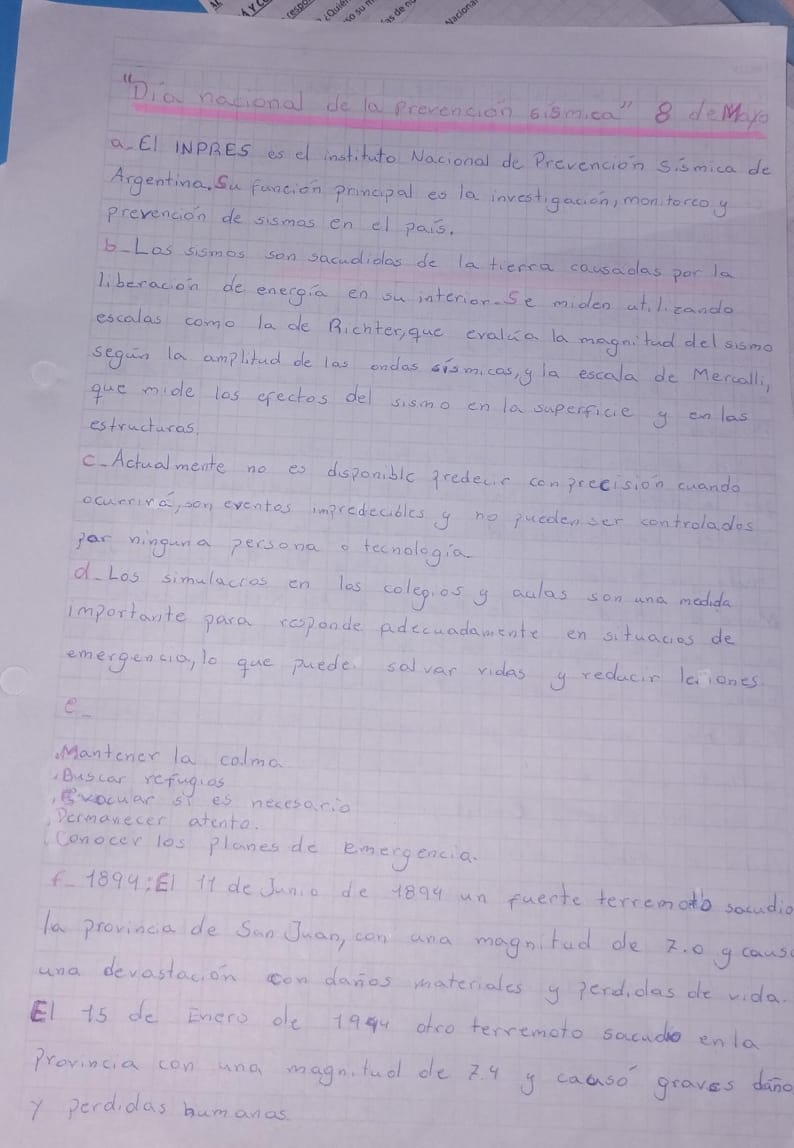 respo
¿Quién
so su m
as de n
Naciona
"Dia nacional de la prevención sismica" 8 de Mayo
a- El INPRES es el instituto Nacional de Prevención Sísmica de
Argentina. Su función principal es la investigación, monitoreo y
prevención de sismos en el país.
b- Los sismos son sacudidas de la tierra causadas por la
liberación de energía en su interior. Se miden utilizando
escalas como la de Richter, que evalúa la magnitud del sismo
según la amplitud de las ondas sísmicas, y la escala de Mercalli,
que mide los efectos del sismo en la superficie y en las
estructuras.
c- Actualmente no es disponible predecir con precisión cuando
ocurrirá, son eventos impredecibles y no pueden ser controlados
por ninguna persona o tecnología
d- Los simulacros en los colegios y aulas son una medida
importante para responde adecuadamente en situacios de
emergencia, lo que puede salvar vidas y reducir leciones
e-
.Mantener la calma
.Buscar refugios
.Evacuar si es necesario
.Permanecer atento.
.Conocer los planes de emergencia.
f- 1894: El 11 de Junio de 1894 un fuerte terremoto sacudio
la provincia de San Juan, con una magnitud de 7.0 y caus
una devastación con daños materiales y perdidas de vida.
El 15 de Enero de 1944 otro terremoto sacudio en la
Provincia con una magnitud de 7.4 y causó graves daño
y perdidas humanas.